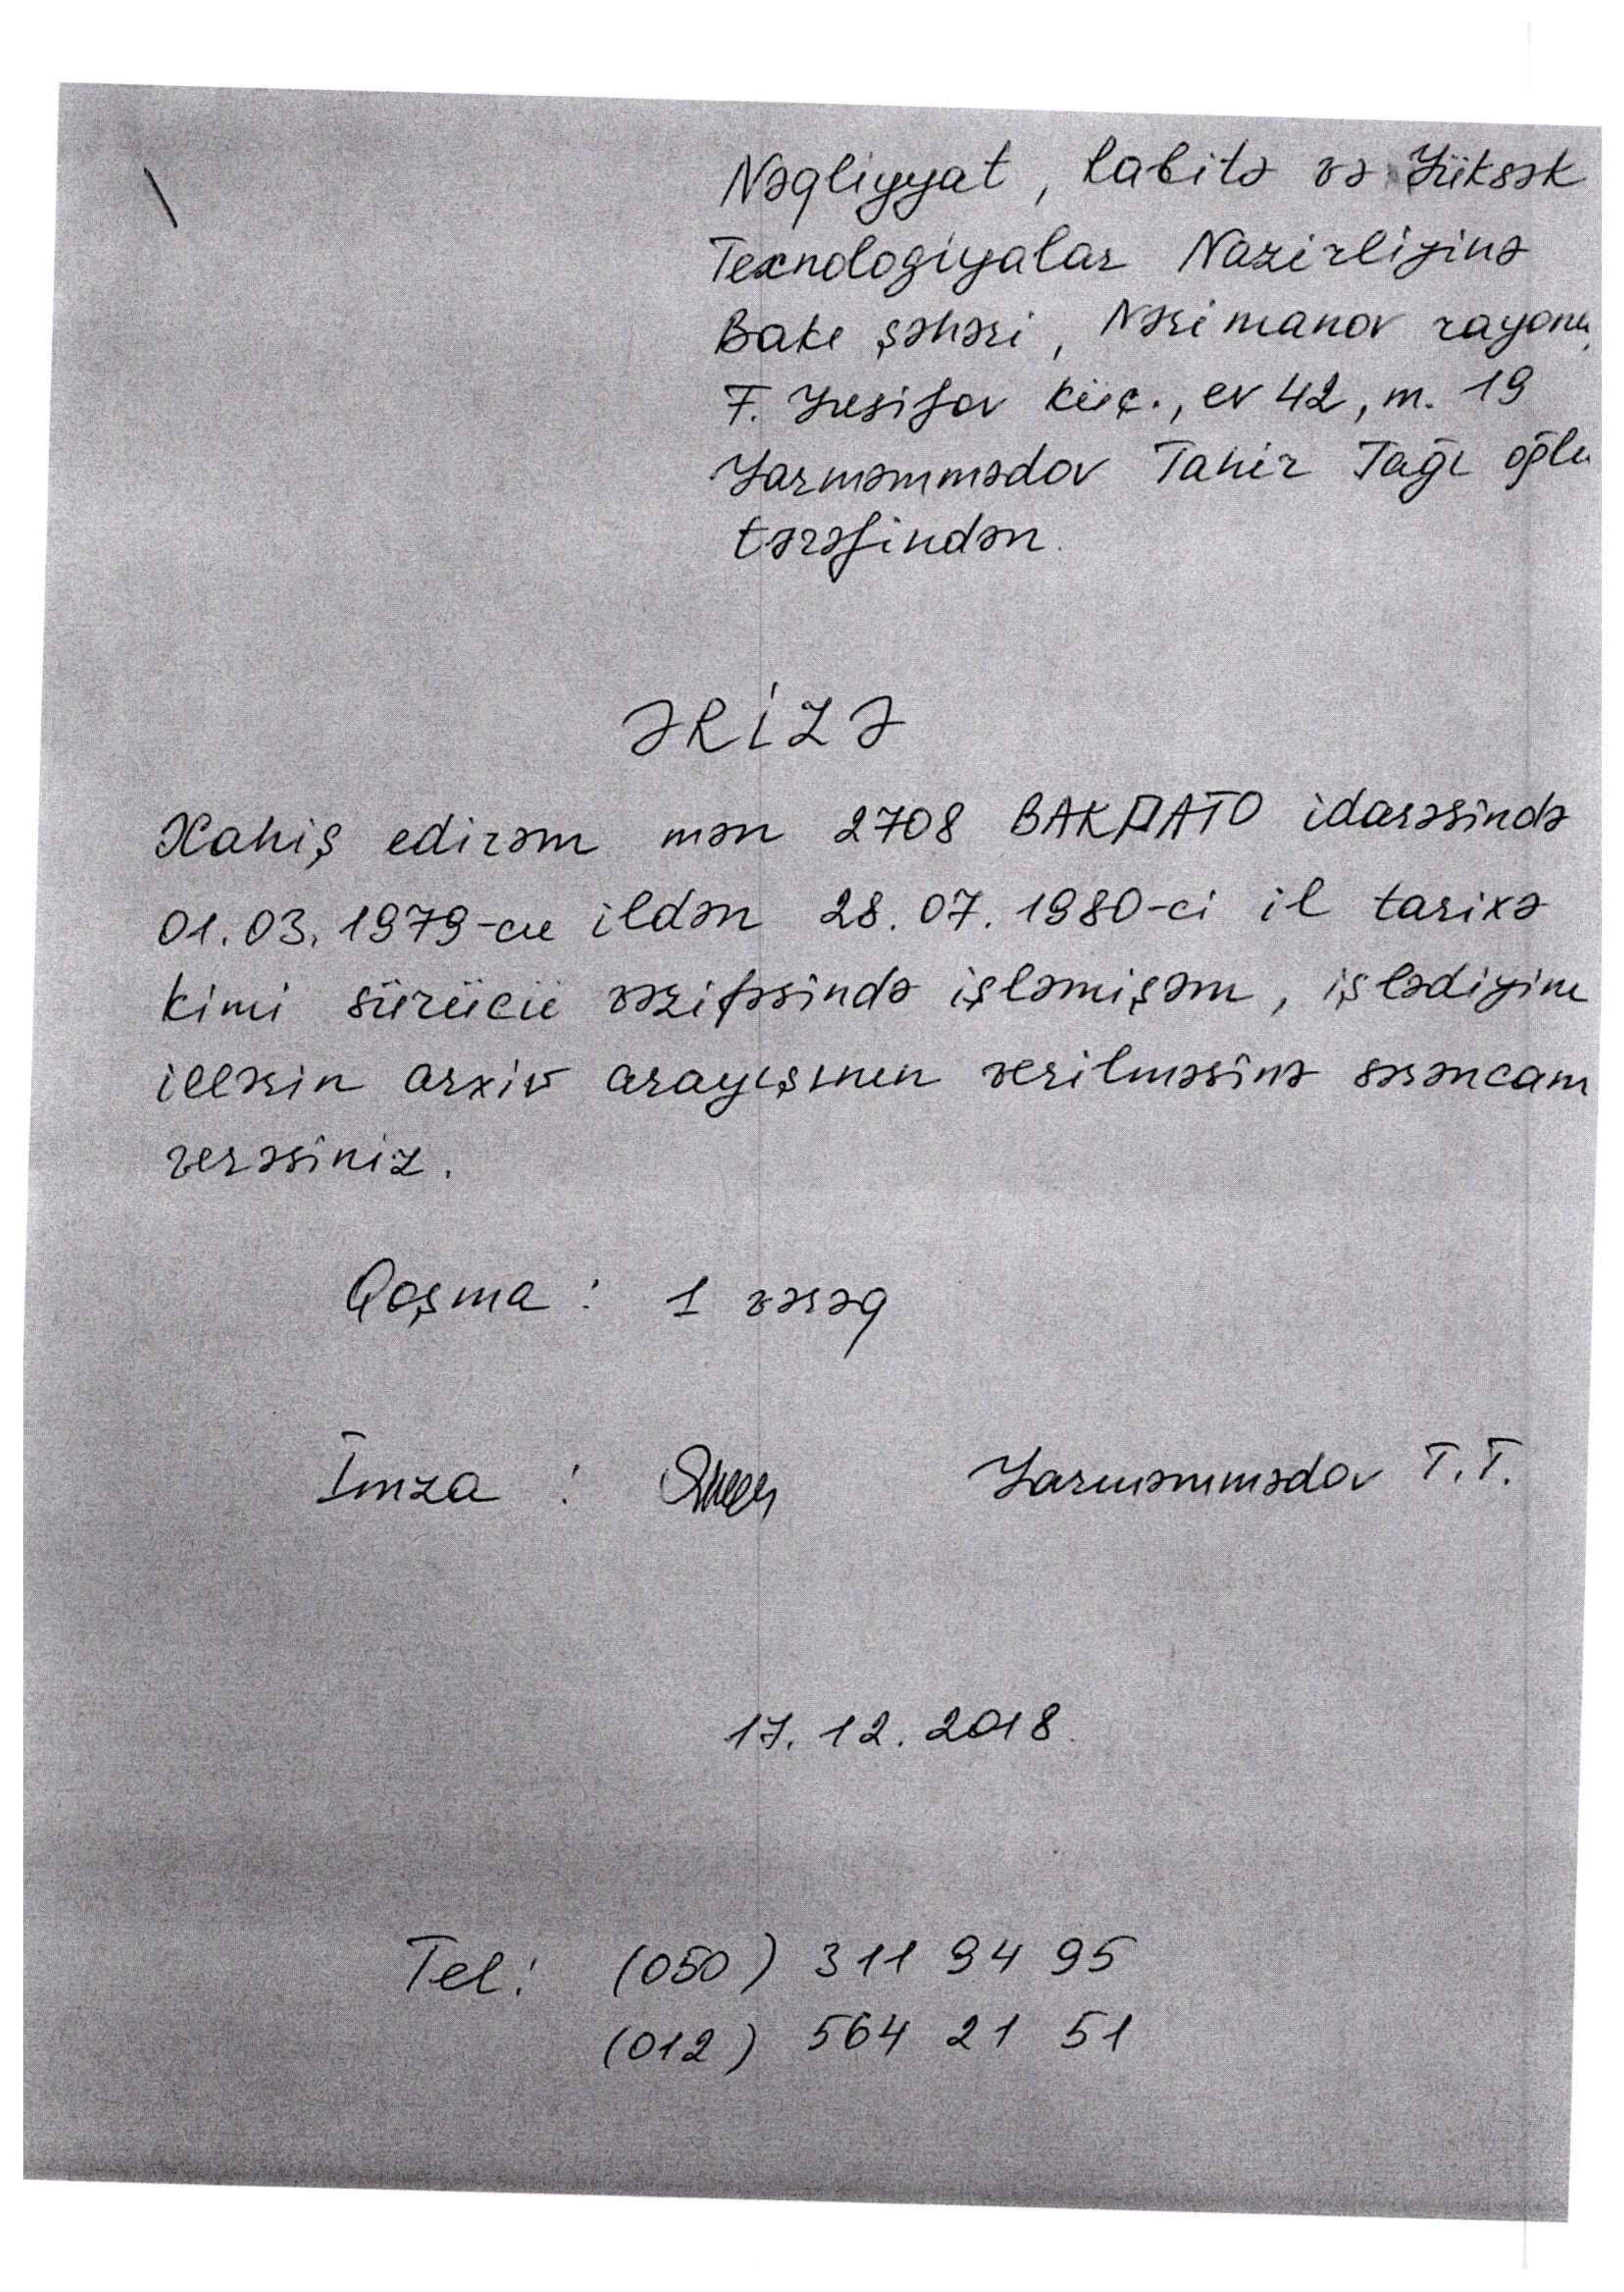 Nəqliyyat, Rabitə və Yüksək
Texnologiyalar Nazirliyinə
Bakı şəhəri, Nərimanov rayonu,
F. Yusifov küç., ev 42, m. 19
Yarməmmədov Tahir Tağı oğlu
tərəfindən.
ƏRİZƏ
Xahiş edirəm mən 2708 BAKДATO idarəsində
01.03.1979-cu ildən 28.07.1980-ci il tarixə
kimi sürücü vəzifəsində işləmişəm, işlədiyim
illərin arxiv arayışının verilməsinə sərəncam
verəsiniz.
Qoşma: 1 vərəq
İmza: Yarməmmədov T.T.
17.12.2018
Tel: (050) 311 94 95
(012) 564 21 51